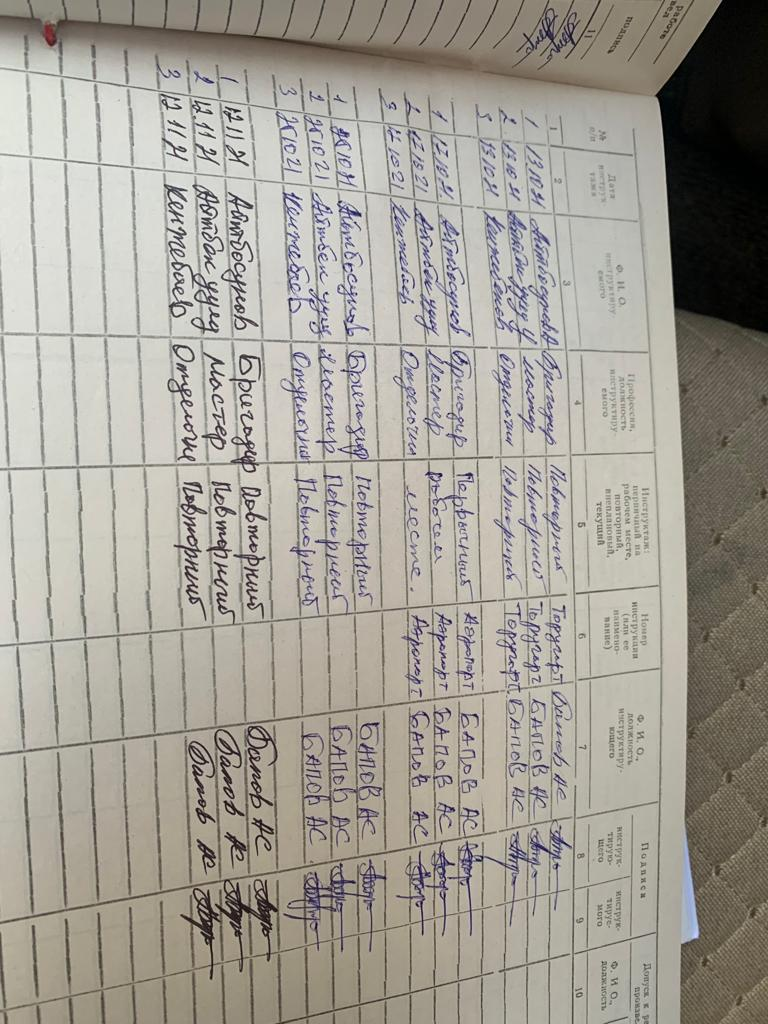 работе
вед
подпись
11
№ п/п
Дата инструктажа
Ф. И. О. инструктируемого
Профессия, должность инструктируемого
Инструктаж: первичный на рабочем месте, повторный, внеплановый, текущий
Номер инструкции (или ее наименование)
Ф. И. О., должность инструктирующего
Подписи
инструктирующего
инструктируемого
Допуск к ра
произве
Ф. И. О., должность
1 2 3 4 5 6 7 8 9 10
1 13.10.21 Айтбосунов А Бригадир Повторный Торугарт Бапов АС
2 13.10.21 уулу У Мастер Повторного Торугарт БАПОВ АС
3 13.10.21 Отделочни Повторный Торугарт БАПОВ АС
1 12.10.21 Айтбосунов Бригадир Первычный Аэропорт БАПОВ АС
2 12.10.21 Айтбек уулу Мастер рабочем Аэропорт БАПОВ АС
3 12.10.21 Кенжебаев Отделочни месте. Аэропорт БАПОВ АС
1 25.10.21 Айтбосунов Бригадир Повторный БАПОВ АС
2 25.10.21 Айтбек уулу Мастер Повторный БАПОВ АС
3 25.10.21 Кенжебаев Отделочны Повторный БАПОВ АС
1 12 11 21 Айтбосунов Бригадир Повторний Бапов АС
2 12 11 21 Айтбек уулу Мастер Повторний Бапов АС
3 12 11 21 Кенжебаев Отделочне Повторний Бапов АС